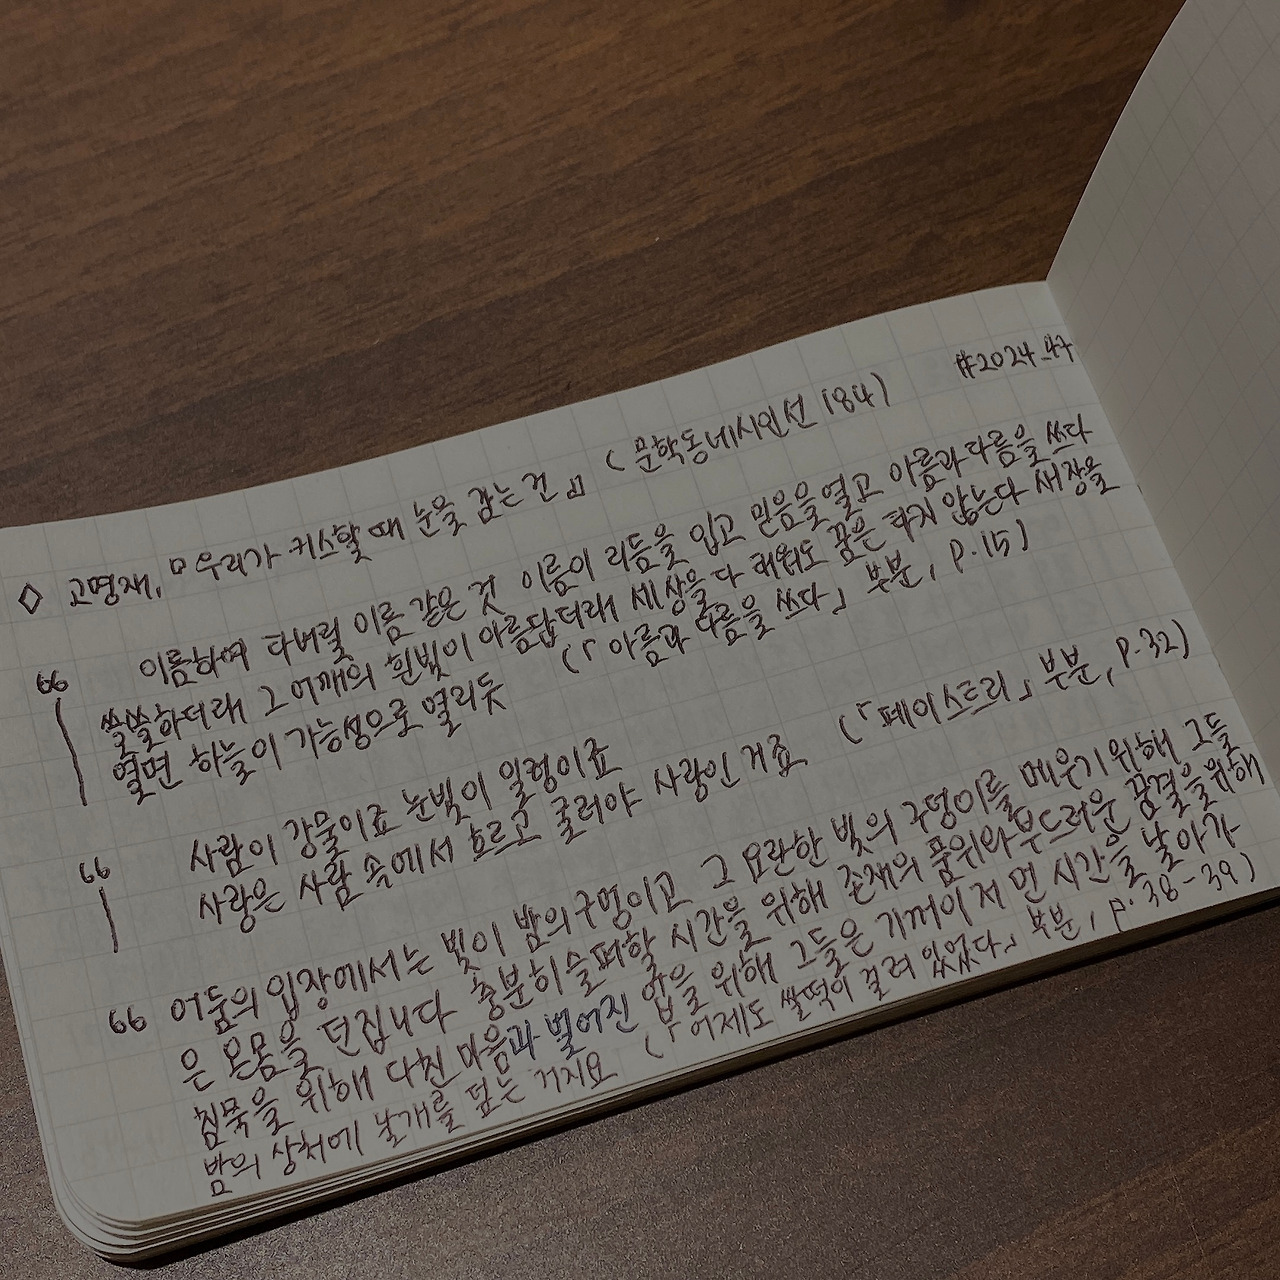 #2024_47
◇ 고명재, 『우리가 키스할 때 눈을 감는 건』 (문학동네시인선 184)
66 이름하여 타버릴 이름 같은 것 이름이 리듬을 입고 믿음을 열고 아름과 다름을 쓰다
쓸쓸하더래 그 어깨의 흰빛이 아름답더래 세상을 다 태워도 꿈은 타지 않는다 새장을
열면 하늘이 가능성으로 열리듯 (「아름과 다름을 쓰다」 부분, p.15)
66 사람이 강물이죠 눈빛이 일렁이죠
사랑은 사람 속에서 흐르고 굴러야 사랑인 거죠 (「페이스트리」 부분, p.32)
66 어둠의 입장에서는 빛이 밤의 구멍이고 그 요란한 빛의 구덩이를 메우기 위해 그들
은 온몸을 던집니다 충분히 슬퍼할 시간을 위해 존재의 품위와 부드러운 꿈결을 위해
침묵을 위해 다친 마음과 벌어진 입을 위해 그들은 기꺼이 저 먼 시간을 날아가
밤의 상처에 날개를 덮는 거지요 (「어제도 쌀떡이 걸려 있었다」 부분, p.38-39)